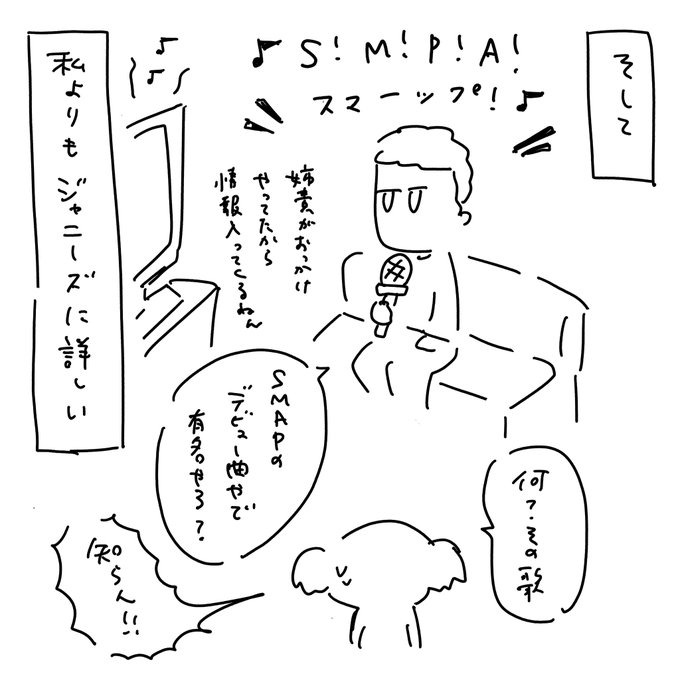 そして
♪S!M!P!A!
スマーップ!♪
姉貴がおっかけ
やってたから
情報入ってくるねん
私よりもジャニーズに詳しい
何?その歌
SMAPの
デビュー曲やで
有名やろ?
知らん!!